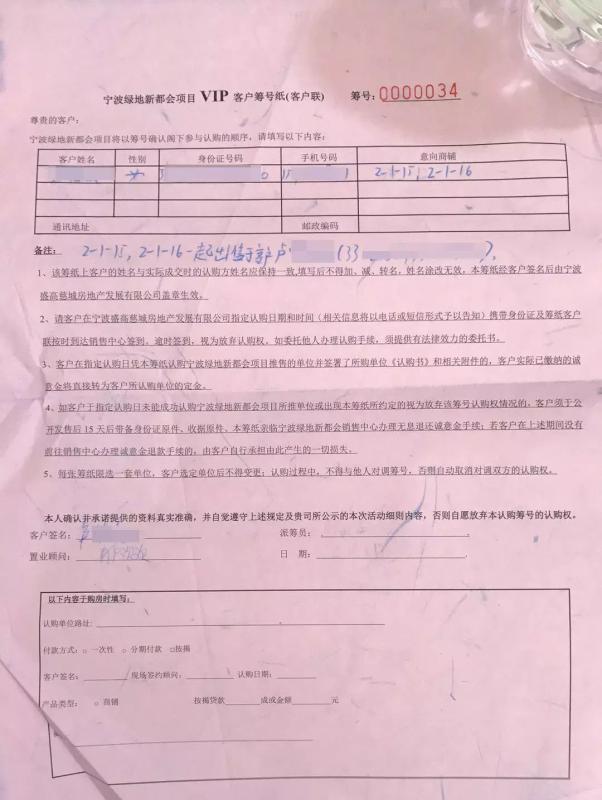 宁波绿地新都会项目 VIP 客户筹号纸(客户联) 筹号: 0000034
尊贵的客户:
宁波绿地新都会项目将以筹号确认阁下参与认购的顺序, 请填写以下内容:
客户姓名 性别 身份证号码 手机号码 意向商铺
女 2-1-15, 2-1-16
通讯地址 邮政编码
备注: 2-1-15, 2-1-16 一起出售于新户: (33 ).
1、该筹纸上客户的姓名与实际成交时的认购方姓名应保持一致,填写后不得加、减、转名, 姓名涂改无效, 本筹纸经客户签名后由宁波
盛高慈城房地产发展有限公司盖章生效。
2、请客户在宁波盛高慈城房地产发展有限公司指定认购日期和时间 (相关信息将以电话或短信形式予以告知) 携带身份证及筹纸客户
联按时到达销售中心签到。逾时签到, 视为放弃认购权。如委托他人办理认购手续, 须提供有法律效力的委托书。
3、客户在指定认购日凭本筹纸认购宁波绿地新都会项目推售的单位并签署了所购单位《认购书》和相关附件的, 客户实际已缴纳的诚
意金将直接转为客户所认购单位的定金。
4、如客户于指定认购日未能成功认购宁波绿地新都会项目所推单位或出现本筹纸所约定的视为放弃该筹号认购权情况的, 客户须于公
开发售后 15 天后带备身份证原件、收据原件、本筹纸亲临宁波绿地新都会销售中心办理无息退还诚意金手续; 若客户在上述期间没有
前往销售中心办理诚意金退款手续的, 由客户自行承担由此产生的一切损失。
5、每张筹纸限选一套单位, 客户选定单位后不得变更; 认购过程中, 不得与他人对调筹号, 否则自动取消对调双方的认购权。
本人确认并承诺提供的资料真实准确, 并自觉遵守上述规定及贵司所公示的本次活动细则内容, 否则自愿放弃本认购筹号的认购权。
客户签名: 派筹员:
置业顾问: 日 期:
以下内容于购房时填写:
认购单位路址:
付款方式: □ 一次性 □ 分期付款 □按揭
客户签名: 现场签约顾问: 认购日期:
产品类型: □ 商铺 按揭贷款 成或金额 元